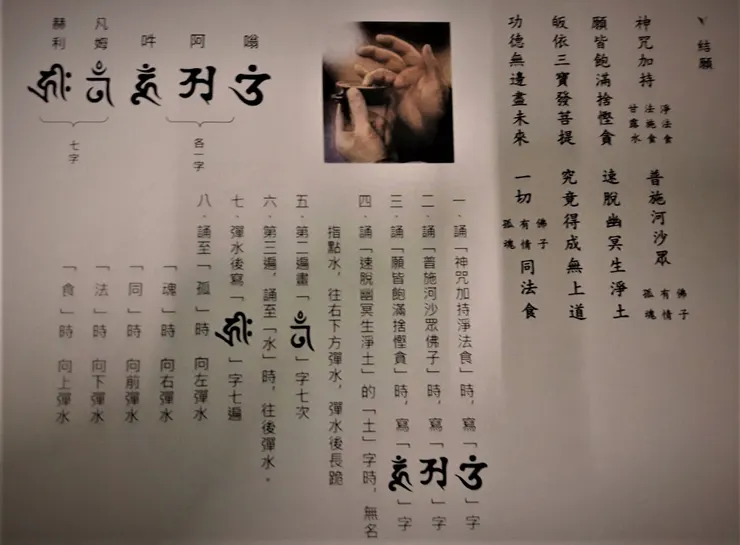 結願
神咒加持 淨法食 法施食 甘露水 普施河沙眾 佛子 有情 孤魂
願皆飽滿捨慳貪 速脫幽冥生淨土
皈依三寶發菩提 究竟得成無上道
功德無邊盡未來 一切 佛子 有情 孤魂 同法食
嗡
阿
吽
各一字
凡姆
赫利
七字
一、誦「神咒加持淨法食」時，寫「」字
二、誦「普施河沙眾佛子」時，寫「」字
三、誦「願皆飽滿捨慳貪」時，寫「」字
四、誦「速脫幽冥生淨土」的「土」字時，無名
指點水，往右下方彈水，彈水後長跪
五、第二遍畫「」字七次
六、第三遍，誦至「水」時，往後彈水。
七、彈水後寫「」字七遍
八、誦至「孤」時 向左彈水
「魂」時 向右彈水
「同」時 向前彈水
「法」時 向下彈水
「食」時 向上彈水